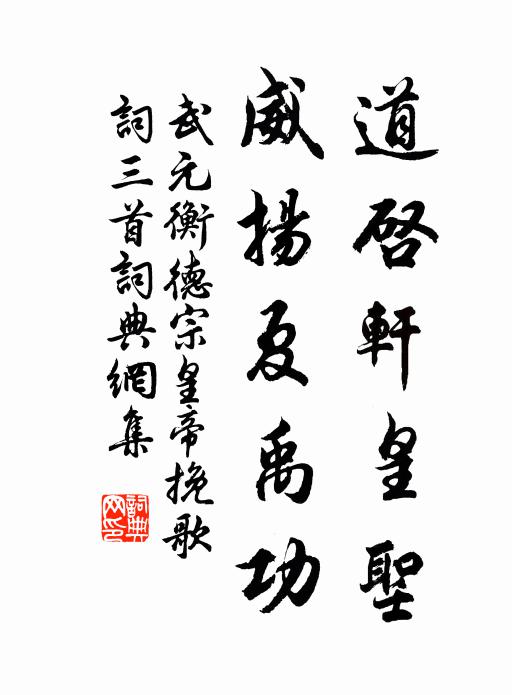 道啓軒皇聖
威揚夏禹功
武元衡德宗皇帝挽歌
詞三首詞典網集
詞典
网印